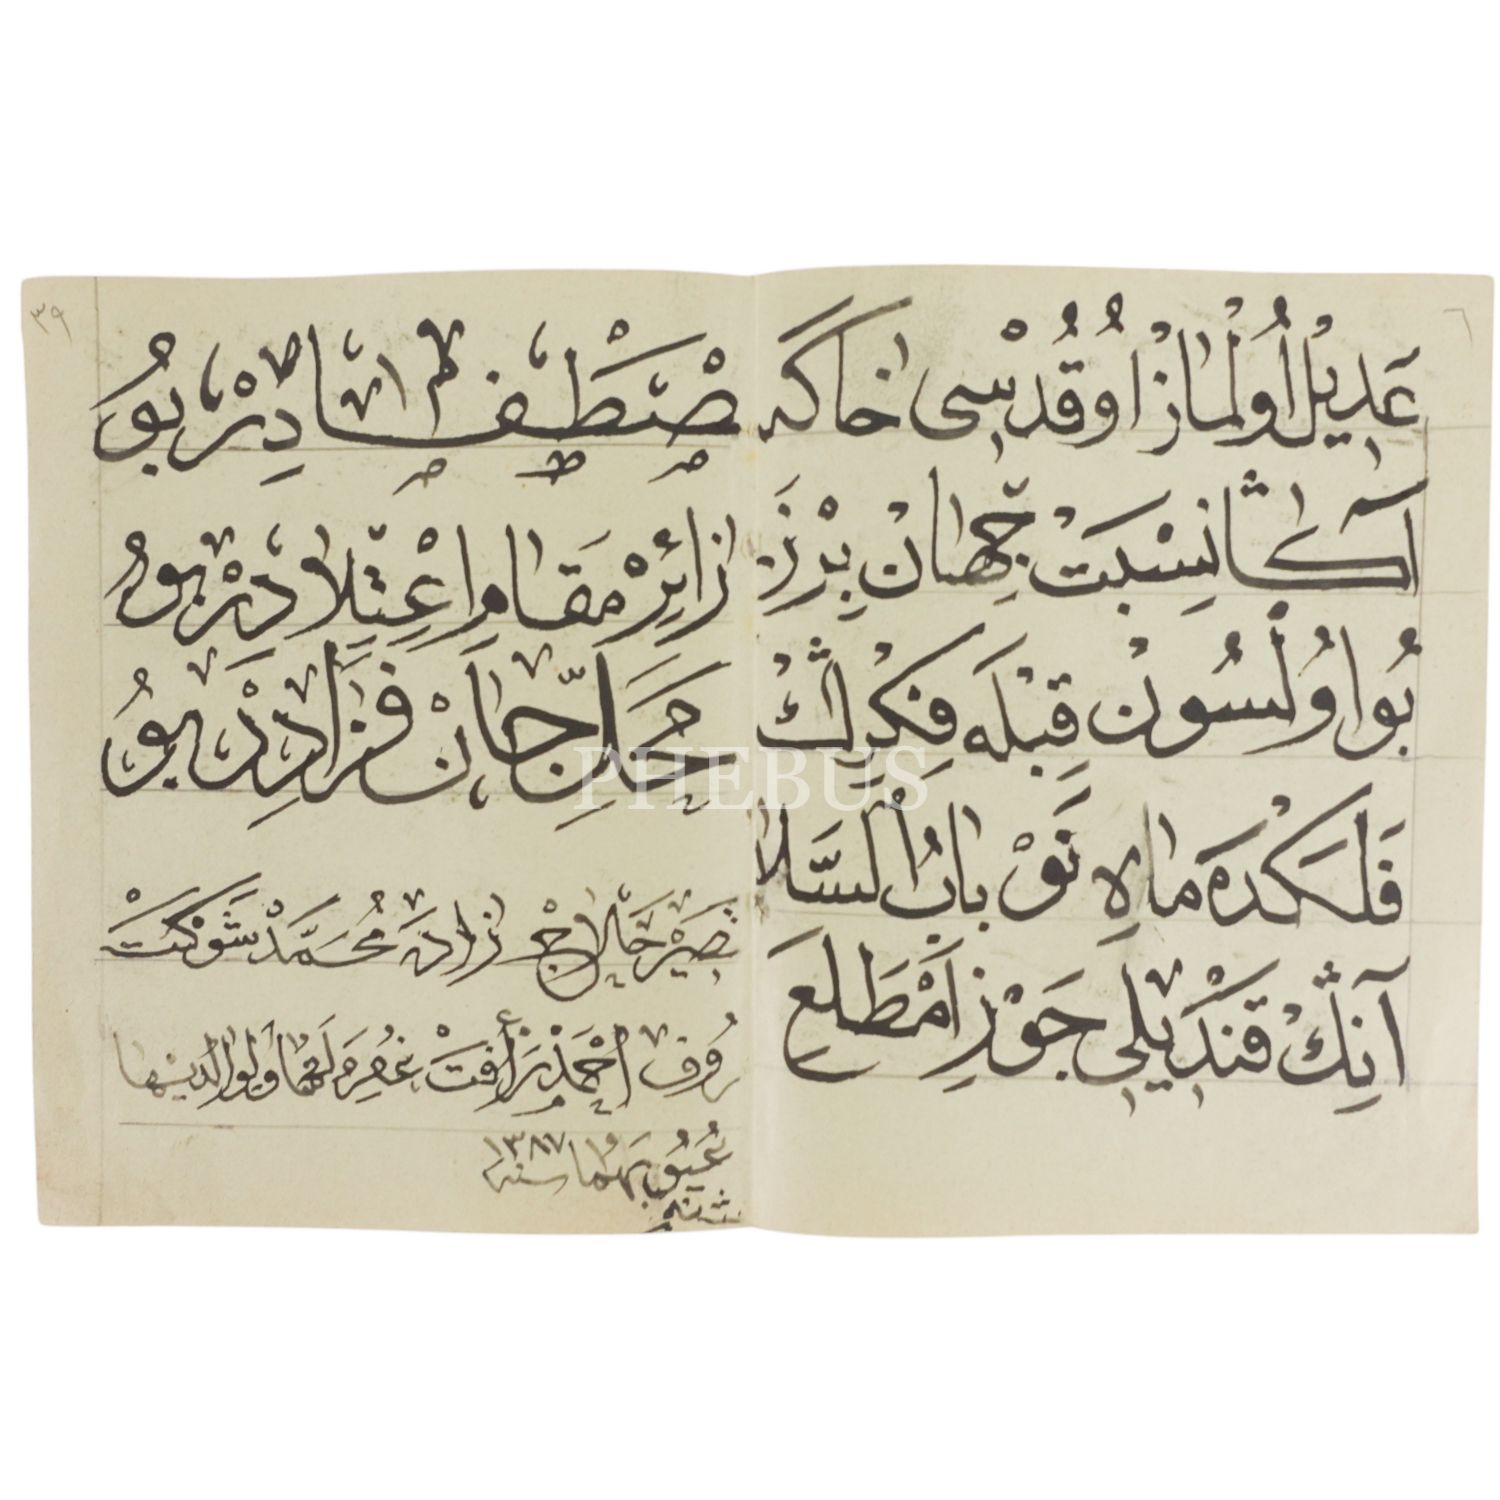 ٦
عَدِيلْ اُولْمَازْ اُو قُدْسِى خَاكَه
آكَا نِسْبَتْ جِهَانْ بِرْ ذَ
بُو اُولْسُونْ قِبْلَه فِكْرِكْ
فَلَكْدَه مَاهِ نَوْ بَابُ السَّلَا
آنِكْ قَنْدِيلِى جَوْزَ اَمْطَلَعِ
٣٩
صْطَفَادِرْ بُو
زَائِرْ مَقَامِ اِعْتِلَادِرْ بُو
حَلِّ جَانْ فَزَادِرْ بُو
زَادَه مُحَمَّدْ شَوْكَتْ
اَحْمَدْ رَأْفَتْ غُفِرَ لَهُمَا وَلِوَالِدَيْهِمَا
سنه ١٣٨٧
PHEBUS